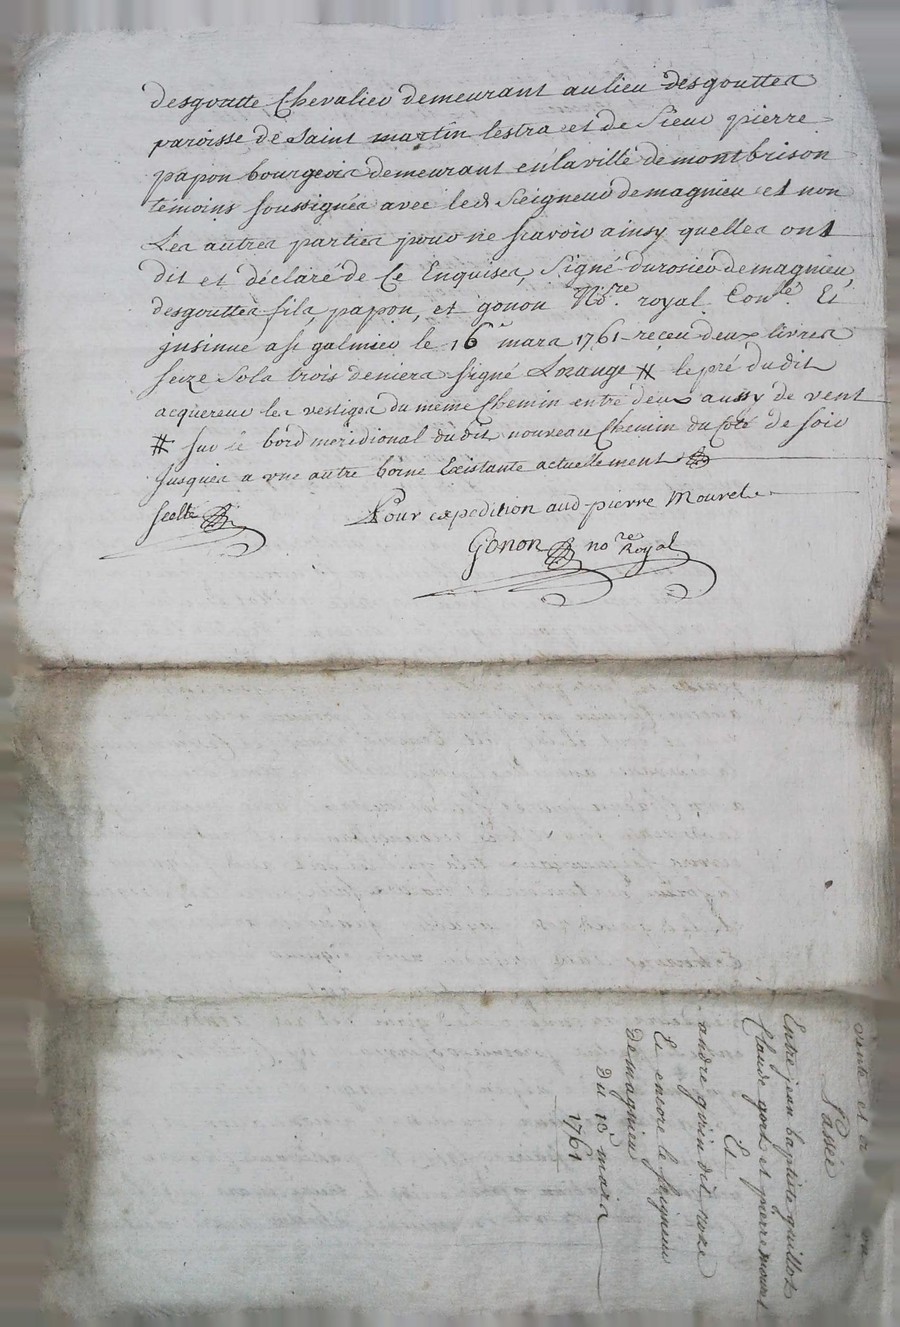 desgoutte Chevalier demeurant au lieu desgouttes
paroisse de Saint martin lestra et de Sieur pierre
papon bourgeois demeurant en la ville de montbrison
témoins soussignés avec led Seigneur de magnieu et non
Les autres parties pour ne scavoir ainsy quelles ont
dit et déclaré de Ce Enquises, Signé durosier de magnieu
desgouttes fils, papon, et gonon No.re royal Con.lé Et
insinué a st galmier le 16.e mars 1761 receu deux livres
seize Sols trois deniers signé Lorange # le pré dudit
acquereur les vestiges du même Chemin entre deux aussy de vent
# sur le bord meridional dudit nouveau Chemin du coté de soir
jusques a une autre borne Existante actuellement
scellé
Pour expedition aud pierre Mouret
Gonon no.re Royal
vente et
Passée
Entre jean baptiste guillot
Claude gord et pierre mouret
Et
andre guerin dit roze
Et encore le seigneur
de magnieu
Du 13.e mars
1761